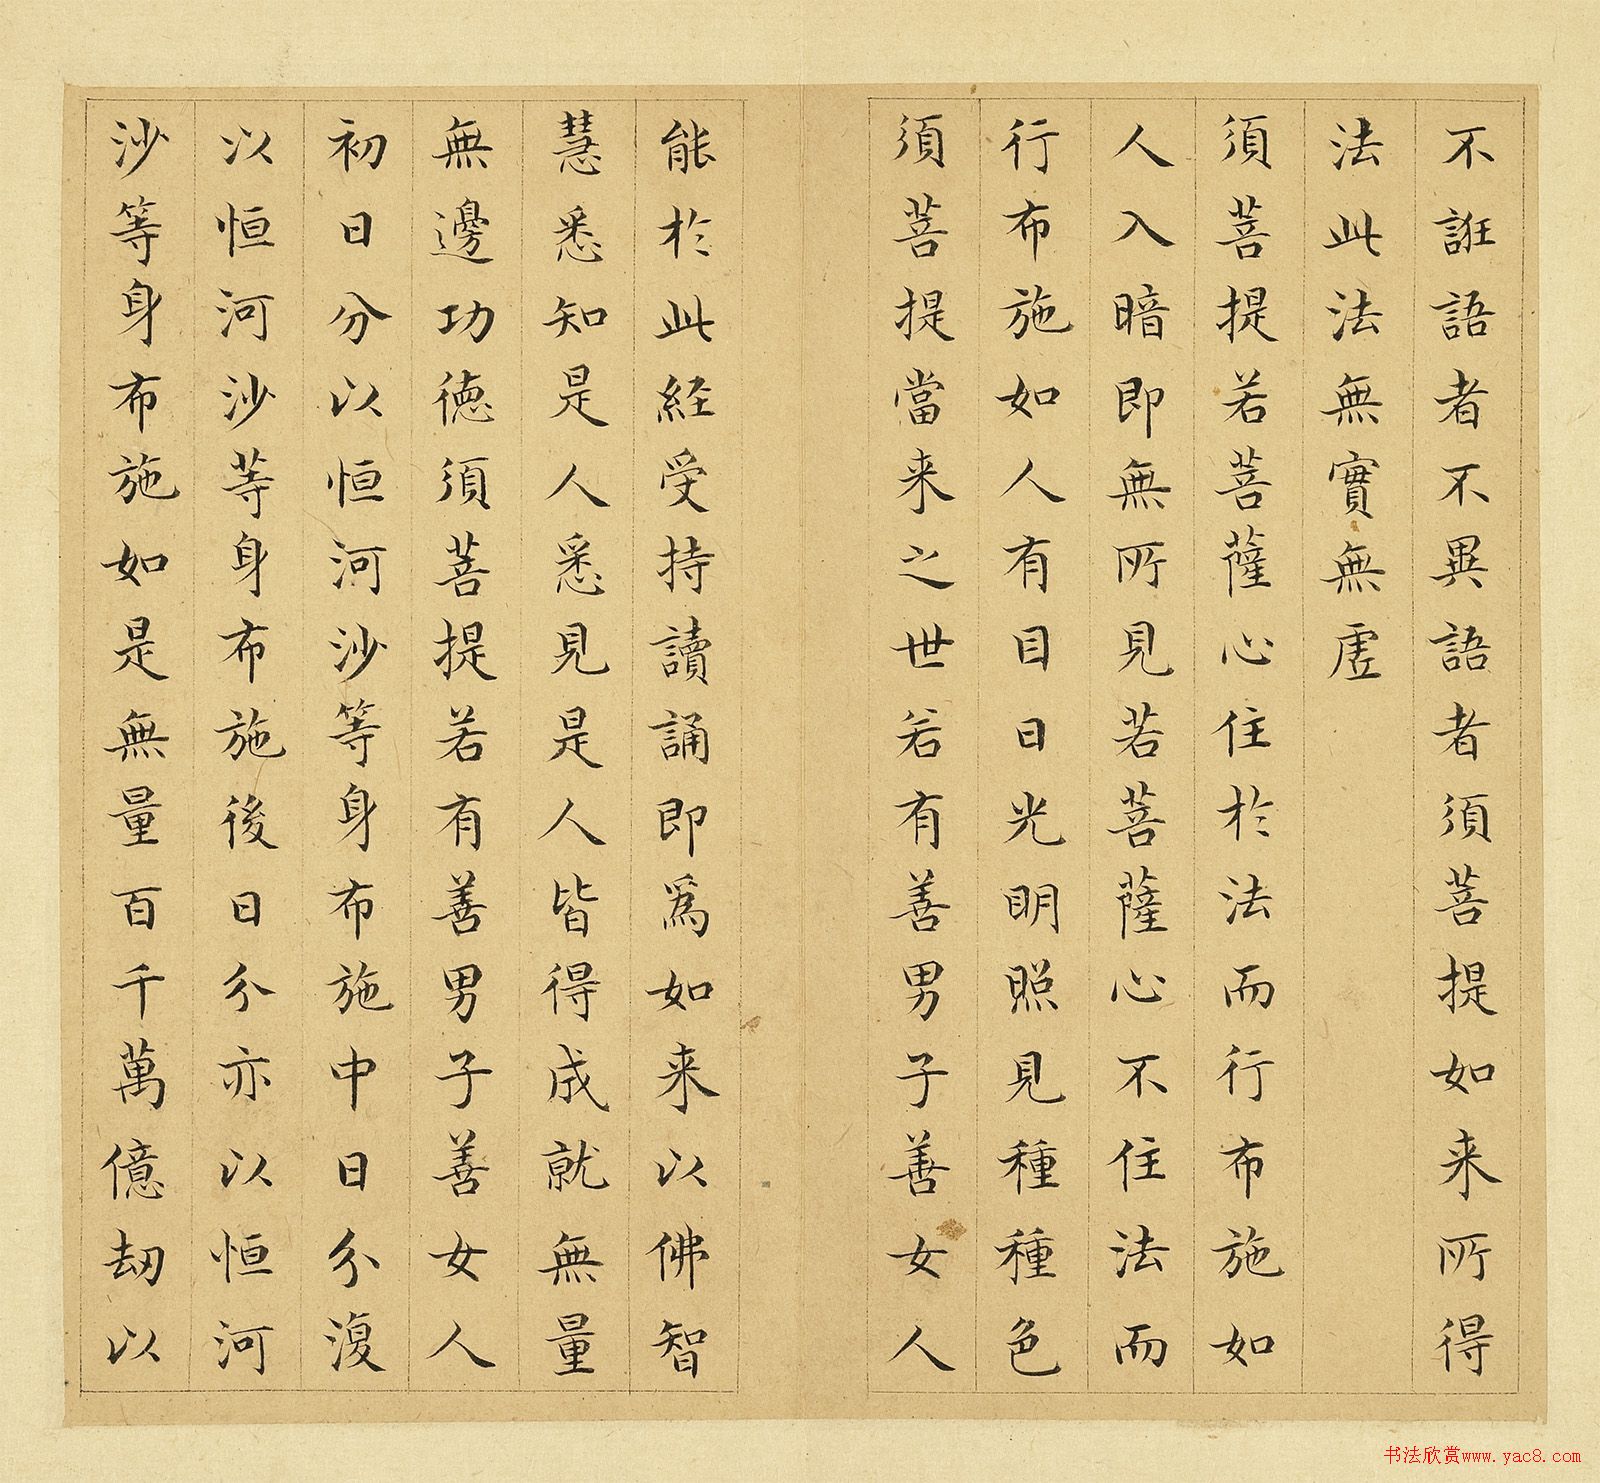 不誑語者不異語者須菩提如来所得
法此法無實無虚
須菩提若菩薩心住於法而行布施如
人入暗即無所見若菩薩心不住法而
行布施如人有目日光明照見種種色
須菩提當来之世若有善男子善女人
能於此経受持讀誦即為如来以佛智
慧悉知是人悉見是人皆得成就無量
無邊功徳須菩提若有善男子善女人
初日分以恒河沙等身布施中日分復
以恒河沙等身布施後日分亦以恒河
沙等身布施如是無量百千萬億劫以
书法欣赏www.yac8.com